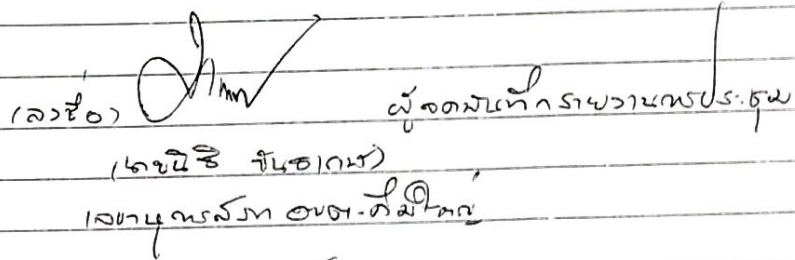 (ลงชื่อ) ผู้จดบันทึกรายงานการประชุม
(นายนิธิ
เลขานุการสภา อบต.คำใหญ่